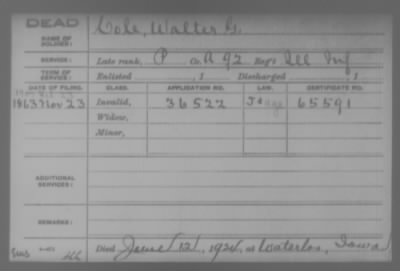 DEAD
NAME OF SOLDIER: Cole, Walter G.
SERVICE: Late rank, P Co. A 92 Reg't Ill Inf
TERM OF SERVICE: Enlisted , 1 Discharged , 1
DATE OF FILING. CLASS. APPLICATION NO. LAW. CERTIFICATE NO.
1863 Nov 23 Invalid, 36522 65591
Widow,
Minor,
ADDITIONAL SERVICES:
REMARKS:
Died June 12, 1924, at Waterloo, Iowa